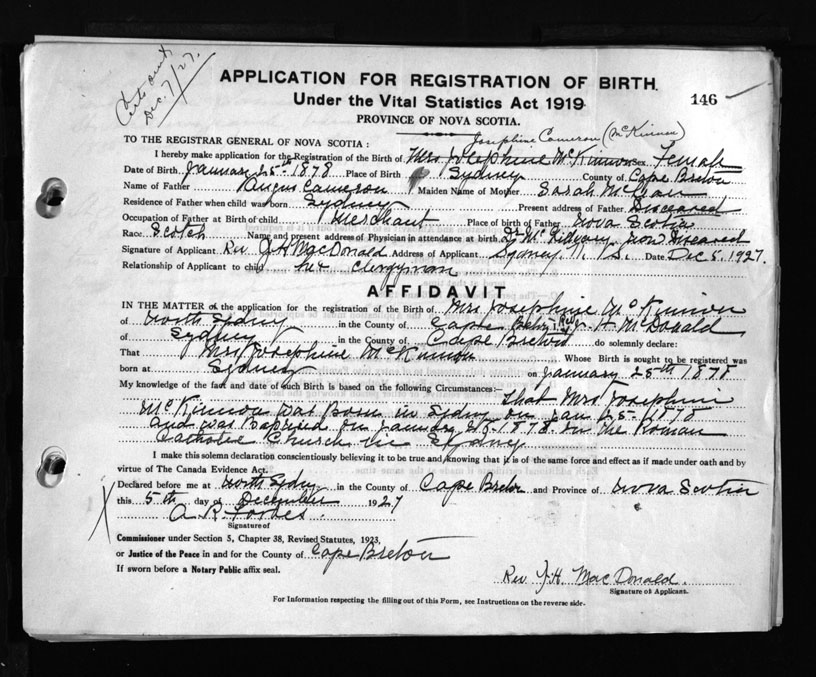 Certs sent
Dec. 7/27.
APPLICATION FOR REGISTRATION OF BIRTH.
Under the Vital Statistics Act 1919
146
PROVINCE OF NOVA SCOTIA.
Josephine Cameron (McKinnon)
TO THE REGISTRAR GENERAL OF NOVA SCOTIA:
I hereby make application for the Registration of the Birth of Mrs Josephine McKinnon Sex Female
Date of Birth January 25th 1878 Place of Birth Sydney County of Cape Breton
Name of Father Angus Cameron Maiden Name of Mother Sarah McLean
Residence of Father when child was born Sydney Present address of Father Deceased
Occupation of Father at Birth of child Merchant Place of birth of Father Nova Scotia
Race Scotch Name and present address of Physician in attendance at birth Dr now
Signature of Applicant Rev J H MacDonald Address of Applicant Sydney N. S. Date Dec 5, 1927.
Relationship of Applicant to child her Clergyman
AFFIDAVIT
IN THE MATTER of the application for the registration of the Birth of Mrs Josephine McKinnon
of North Sydney in the County of Cape Breton I, Rev J H McDonald
of Sydney in the County of Cape Breton do solemnly declare:
That Mrs Josephine McKinnon Whose Birth is sought to be registered was
born at Sydney on January 25th 1878
My knowledge of the fact and date of such Birth is based on the following Circumstances:- That Mrs Josephine
McKinnon was Born in Sydney on Jan 25-1878
and was Baptised on January 1878 in the Roman
Catholic Church in Sydney
I make this solemn declaration conscientiously believing it to be true and knowing that it is of the same force and effect as if made under oath and by
virtue of The Canada Evidence Act.
Declared before me at North Sydney in the County of Cape Breton and Province of Nova Scotia
this 5th day of December 1927
A. R. Forbes
Signature of
Commissioner under Section 5, Chapter 38, Revised Statutes, 1923,
or Justice of the Peace in and for the County of Cape Breton
If sworn before a Notary Public affix seal.
Rev J.H. MacDonald.
Signature of Applicant.
For Information respecting the filling out of this Form, see Instructions on the reverse side.